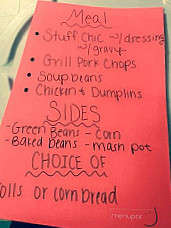 Meal
• Stuff Chic w/dressing
w/gravy
• Grill Pork Chops
• Soup beans
• Chicken & Dumplins
SIDES
- Green Beans - Corn
- Baked Beans - mash pot
CHOICE OF
olls or cornbread
menupix